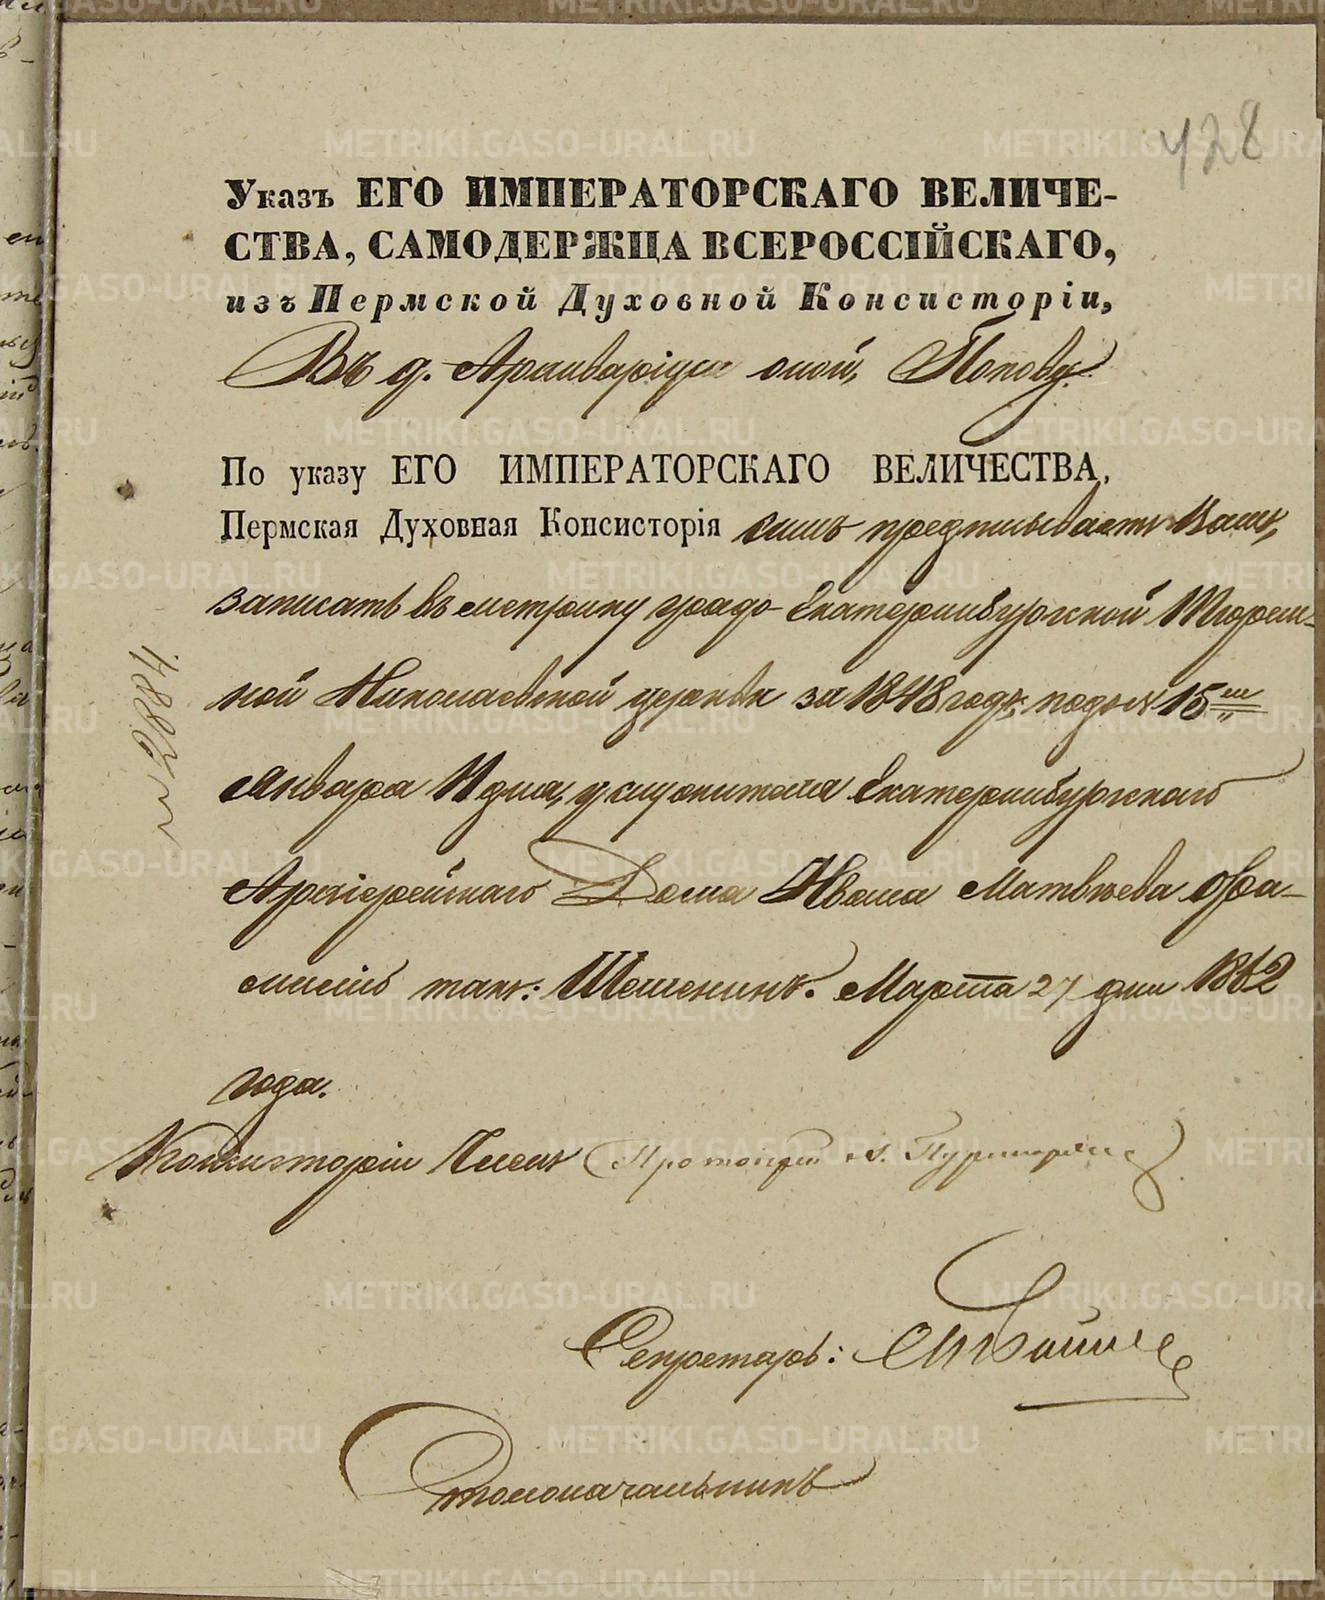 428
Указъ ЕГО ИМПЕРАТОРСКАГО ВЕЛИЧЕ-
СТВА, САМОДЕРЖЦА ВСЕРОССІЙСКАГО,
изъ Пермской Духовной Консисторіи,
Въ д. Архиваріуса оной, Попову.
По указу ЕГО ИМПЕРАТОРСКАГО ВЕЛИЧЕСТВА,
Пермская Духовная Консисторія симъ предписываетъ Вамъ,
записать въ метрику градо-Екатеринбургской Тюрем-
ной Николаевской церкви за 1848 годъ, подъ №15
Января дня, у служителя Екатеринбургскаго
Архіерейскаго Дома Ивана Матвѣева фа-
миліи так: Шешенинъ. Марта 27 дня 1862
года.
№ 2884.
Консисторіи Членъ Протоіерей
Секретарь:
Столоначальникъ
METRIKI.GASO-URAL.RU